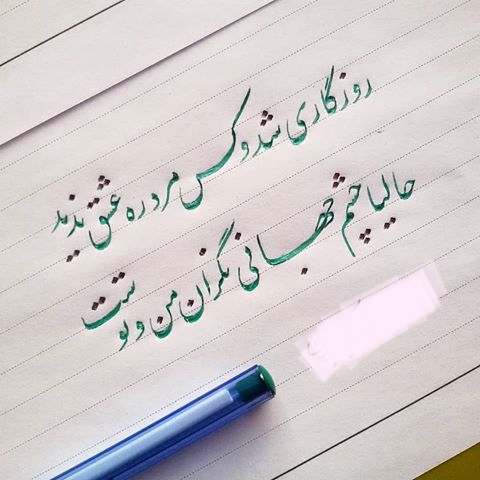 روزگاری شد و کس مرد ره عشق ندید
حالیا چشم جهانی نگران من و توست